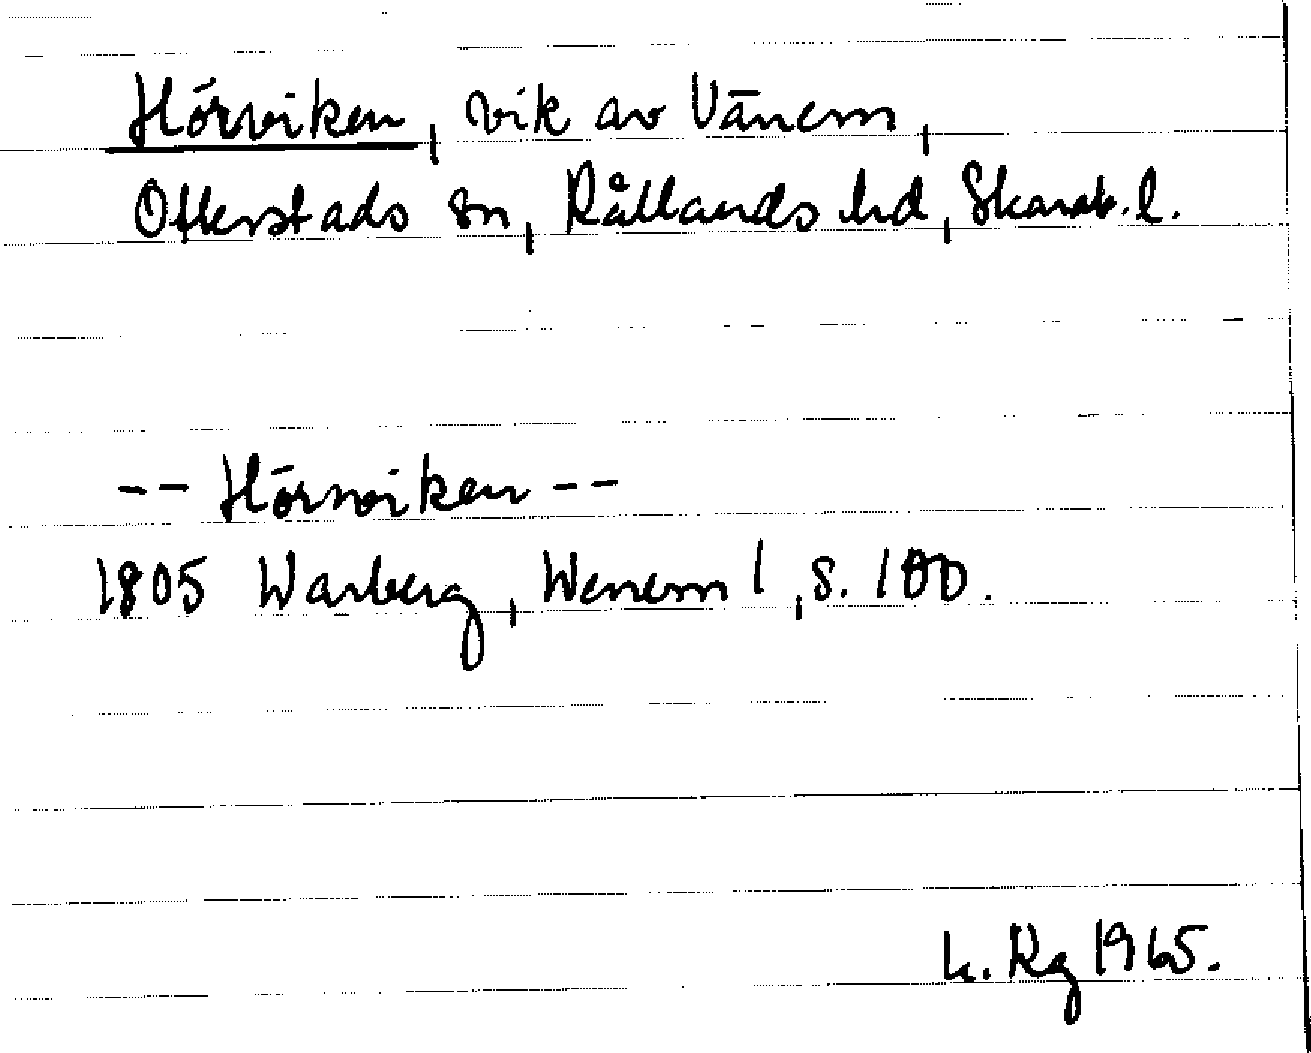 Hörviken, vik av Vänern,
Otterstads sn, Kållands hd, Skarab. l.
-- Hörnviken --
1805 Warberg, Wenern 1, s. 100.
h. Kg 1965.